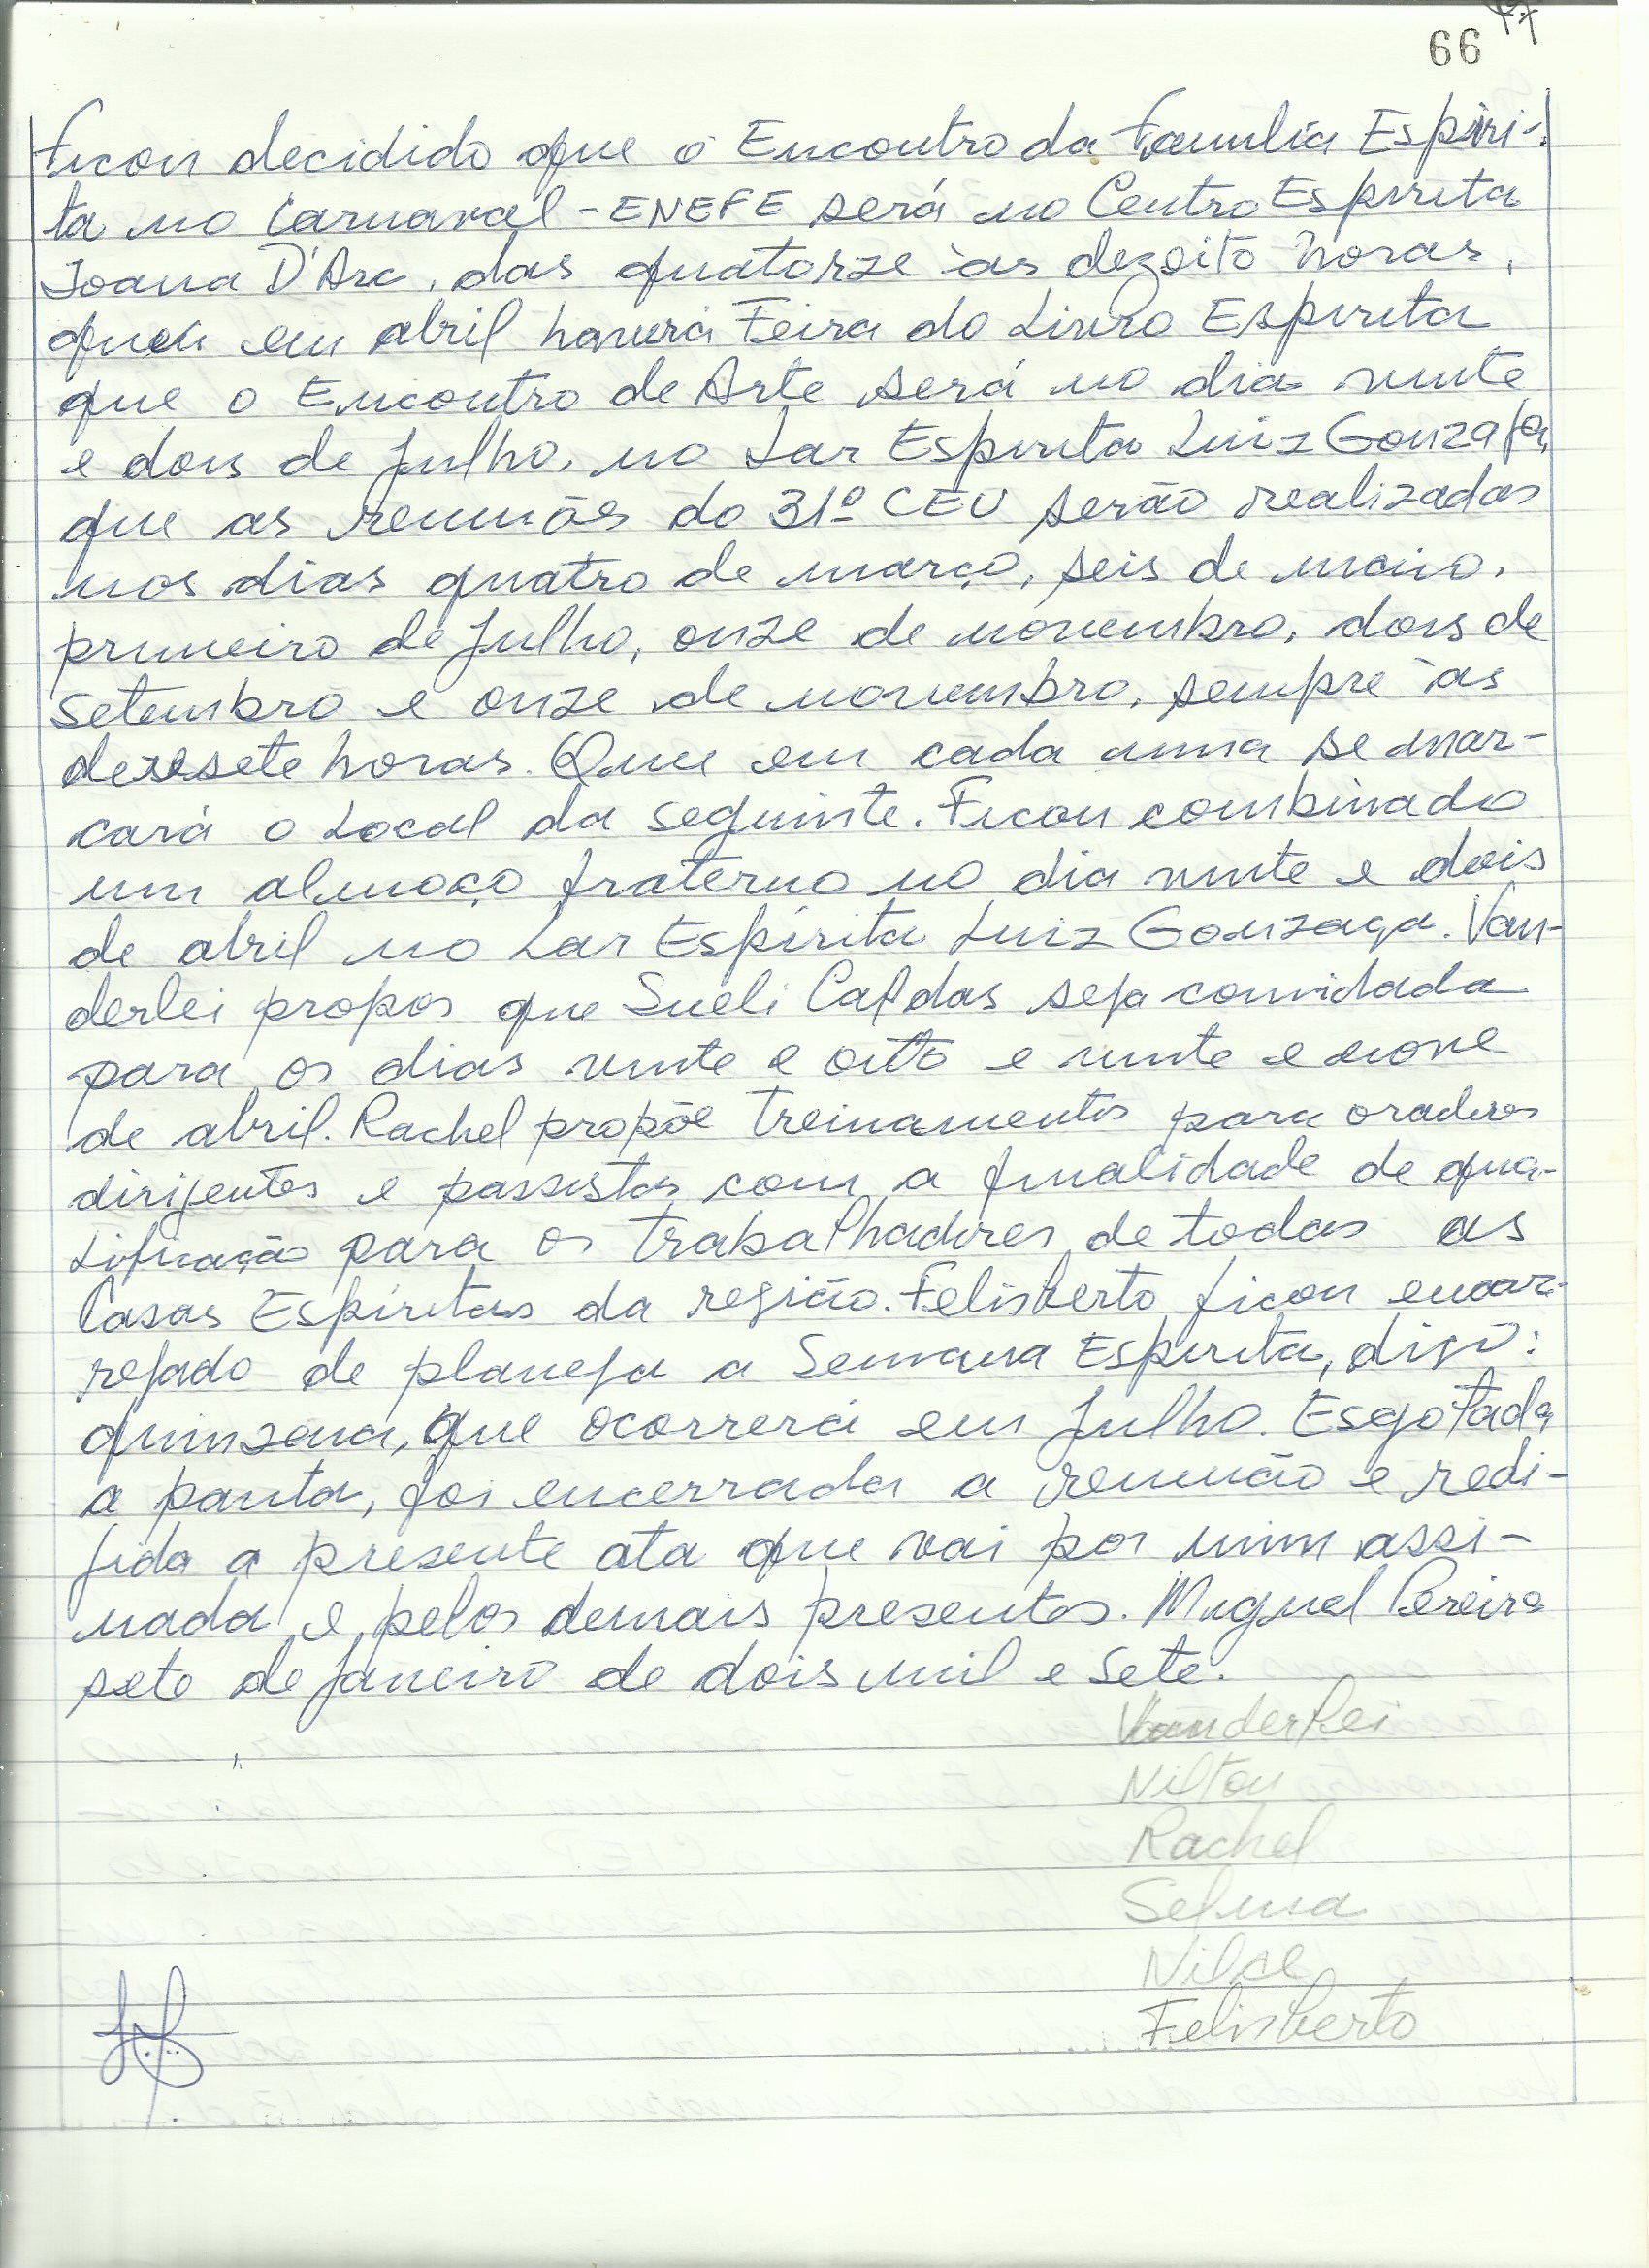 66
Ficou decidido que o Encontro da Família Espíri-
ta no Carnaval - ENEFE será no Centro Espírita
Joana D'Arc, das quatorze às dezoito horas,
que em abril haverá Feira do Livro Espírita
que o Encontro de Arte será no dia vinte
e dois de julho, no Lar Espírita Luiz Gonzaga,
que as reuniões do 31º CEU serão realizadas
nos dias quatro de março, seis de maio,
primeiro de julho, onze de novembro, dois de
setembro e onze de novembro, sempre às
dezesete horas. Que em cada uma se mar-
cará o local da seguinte. Ficou combinado
um almoço fraterno no dia vinte e dois
de abril no Lar Espírita Luiz Gonzaga. Van-
derlei propos que Sueli Caldas seja convidada
para os dias vinte e oito e vinte e nove
de abril. Rachel propõe treinamentos para oradores
dirigentes e passistas com a finalidade de qua-
lificação para os trabalhadores de todas as
Casas Espíritas da região. Felisberto ficou encar-
regado de planeja a Semana Espírita, digo:
quinzena, que ocorrerá em julho. Esgotada
a pauta, foi encerrada a reunião e redi-
gida a presente ata que vai por mim assi-
nada e pelos demais presentes. Miguel Pereira
sete de janeiro de dois mil e sete.
Vanderlei
Nilton
Rachel
Selma
Nilce
Felisberto